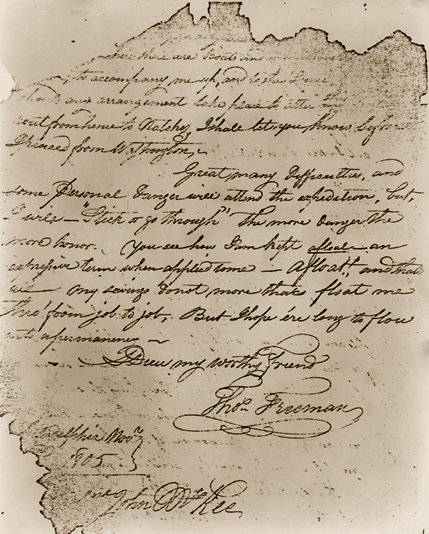 there are Boats and
to accompany me up, and to the
should any arrangement take place to alter
rout from hence to Natchez, I shall let you know before
I proceed from Washington,
Great many Difficulties, and
some Personal danger will attend the expedition, but,
I will — "Stick or go through" the more danger the
more honor. You see how I am kept afloat — an
expressive term when applied to me — Afloat, and that
all — my savings do not more than float me
thro' from job to job, But I hope ere long to flow
into a permanency —
Adieu my worthy Friend
Thos. Freeman
Novr.
1805
John McKee